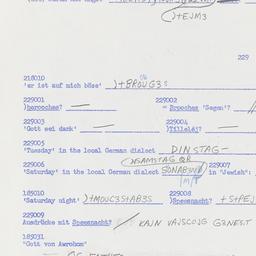 )+EJM3
229
218010
'er ist auf mich böse' )+BROUG3S
229001 229002
)herooches? — = Brooches 'Segen'?
229003 229004
'Gott sei dank' — )Tilleléi? —
229005
'Tuesday' in the local German dialect DINSTAG—
229006 SAMSTAG OR 229007
'Saturday' in the local German dialect in "Jewish":
185010 229008
'Saturday night' )+MOUC3S+AB3S )Spessnacht? +S+PEJ
229009
Ausdrücke mit Spessnacht? KAJN VAJSCOJG G3NEST
185031
"Gott von Awrohom"